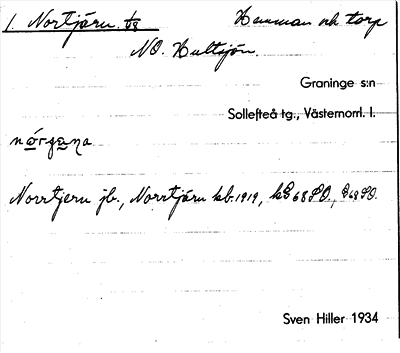 1. Norrtjärn. 1/8 Hemman och torp
NO. Hultsjön.
Graninge s:n
Sollefteå tg., Västernorrl. l.
Norrtjern jb., Norrtjärn kb. 1919, kG 68 SO., G 68 SO.
Sven Hiller 1934